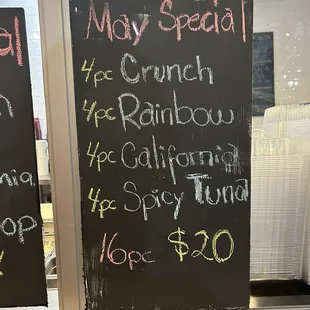 May Special
4pc Crunch
4pc Rainbow
4pc California
4pc Spicy Tuna
16pc $20